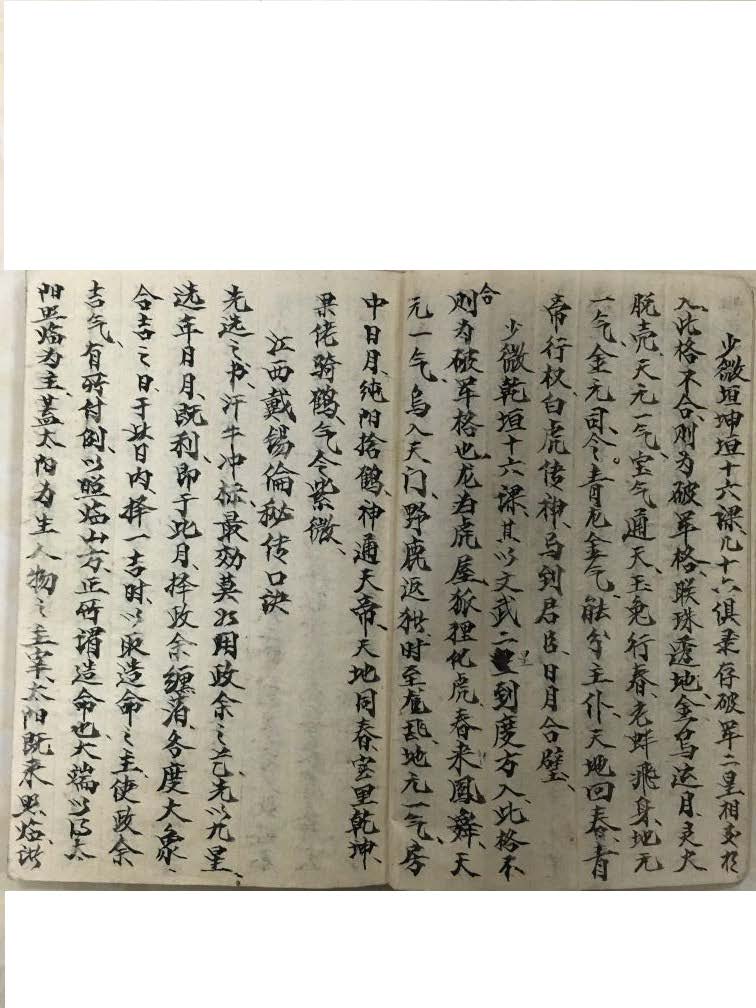 少微垣坤垣十六课、凡十六俱录存破军二星相交於
入此格不合则为破军格、联珠透地、金乌运月、灵犬
脱壳、天元一气、宝气通天、玉兔行春、老蚌飛身、地元
一气、金元司令。青龙金气、能分主仆、天地回春、青
帝行权、白虎传神、马到君臣、日月合璧、
少微乾垣十六课、其以文武二星到度方入、此格不
合则为破军格也、龙为虎屋、狐狸化虎、春来鳳舞、天
元一气、乌入天门、野鹿返 时至 、地元一气、房
中日月、纯阳捨鹤、神通天帝、天地同春、室里乾坤、
果佬骑鹤、气令紫微、
江西戴锡倫秘传口诀
先选之书、汗牛冲栋、最効莫如用政余之艺、先以九星、
选年日月、既利即于此月、择政余缠落、各度大象、
合吉之日、于此日内、择一吉时、以取造命之主、使政余
吉气、有所付倒、以照临山方、正所谓造命也、大端以得太
阳照临为主、蓋太阳为生人物之主宰、太阳既来照临、诸